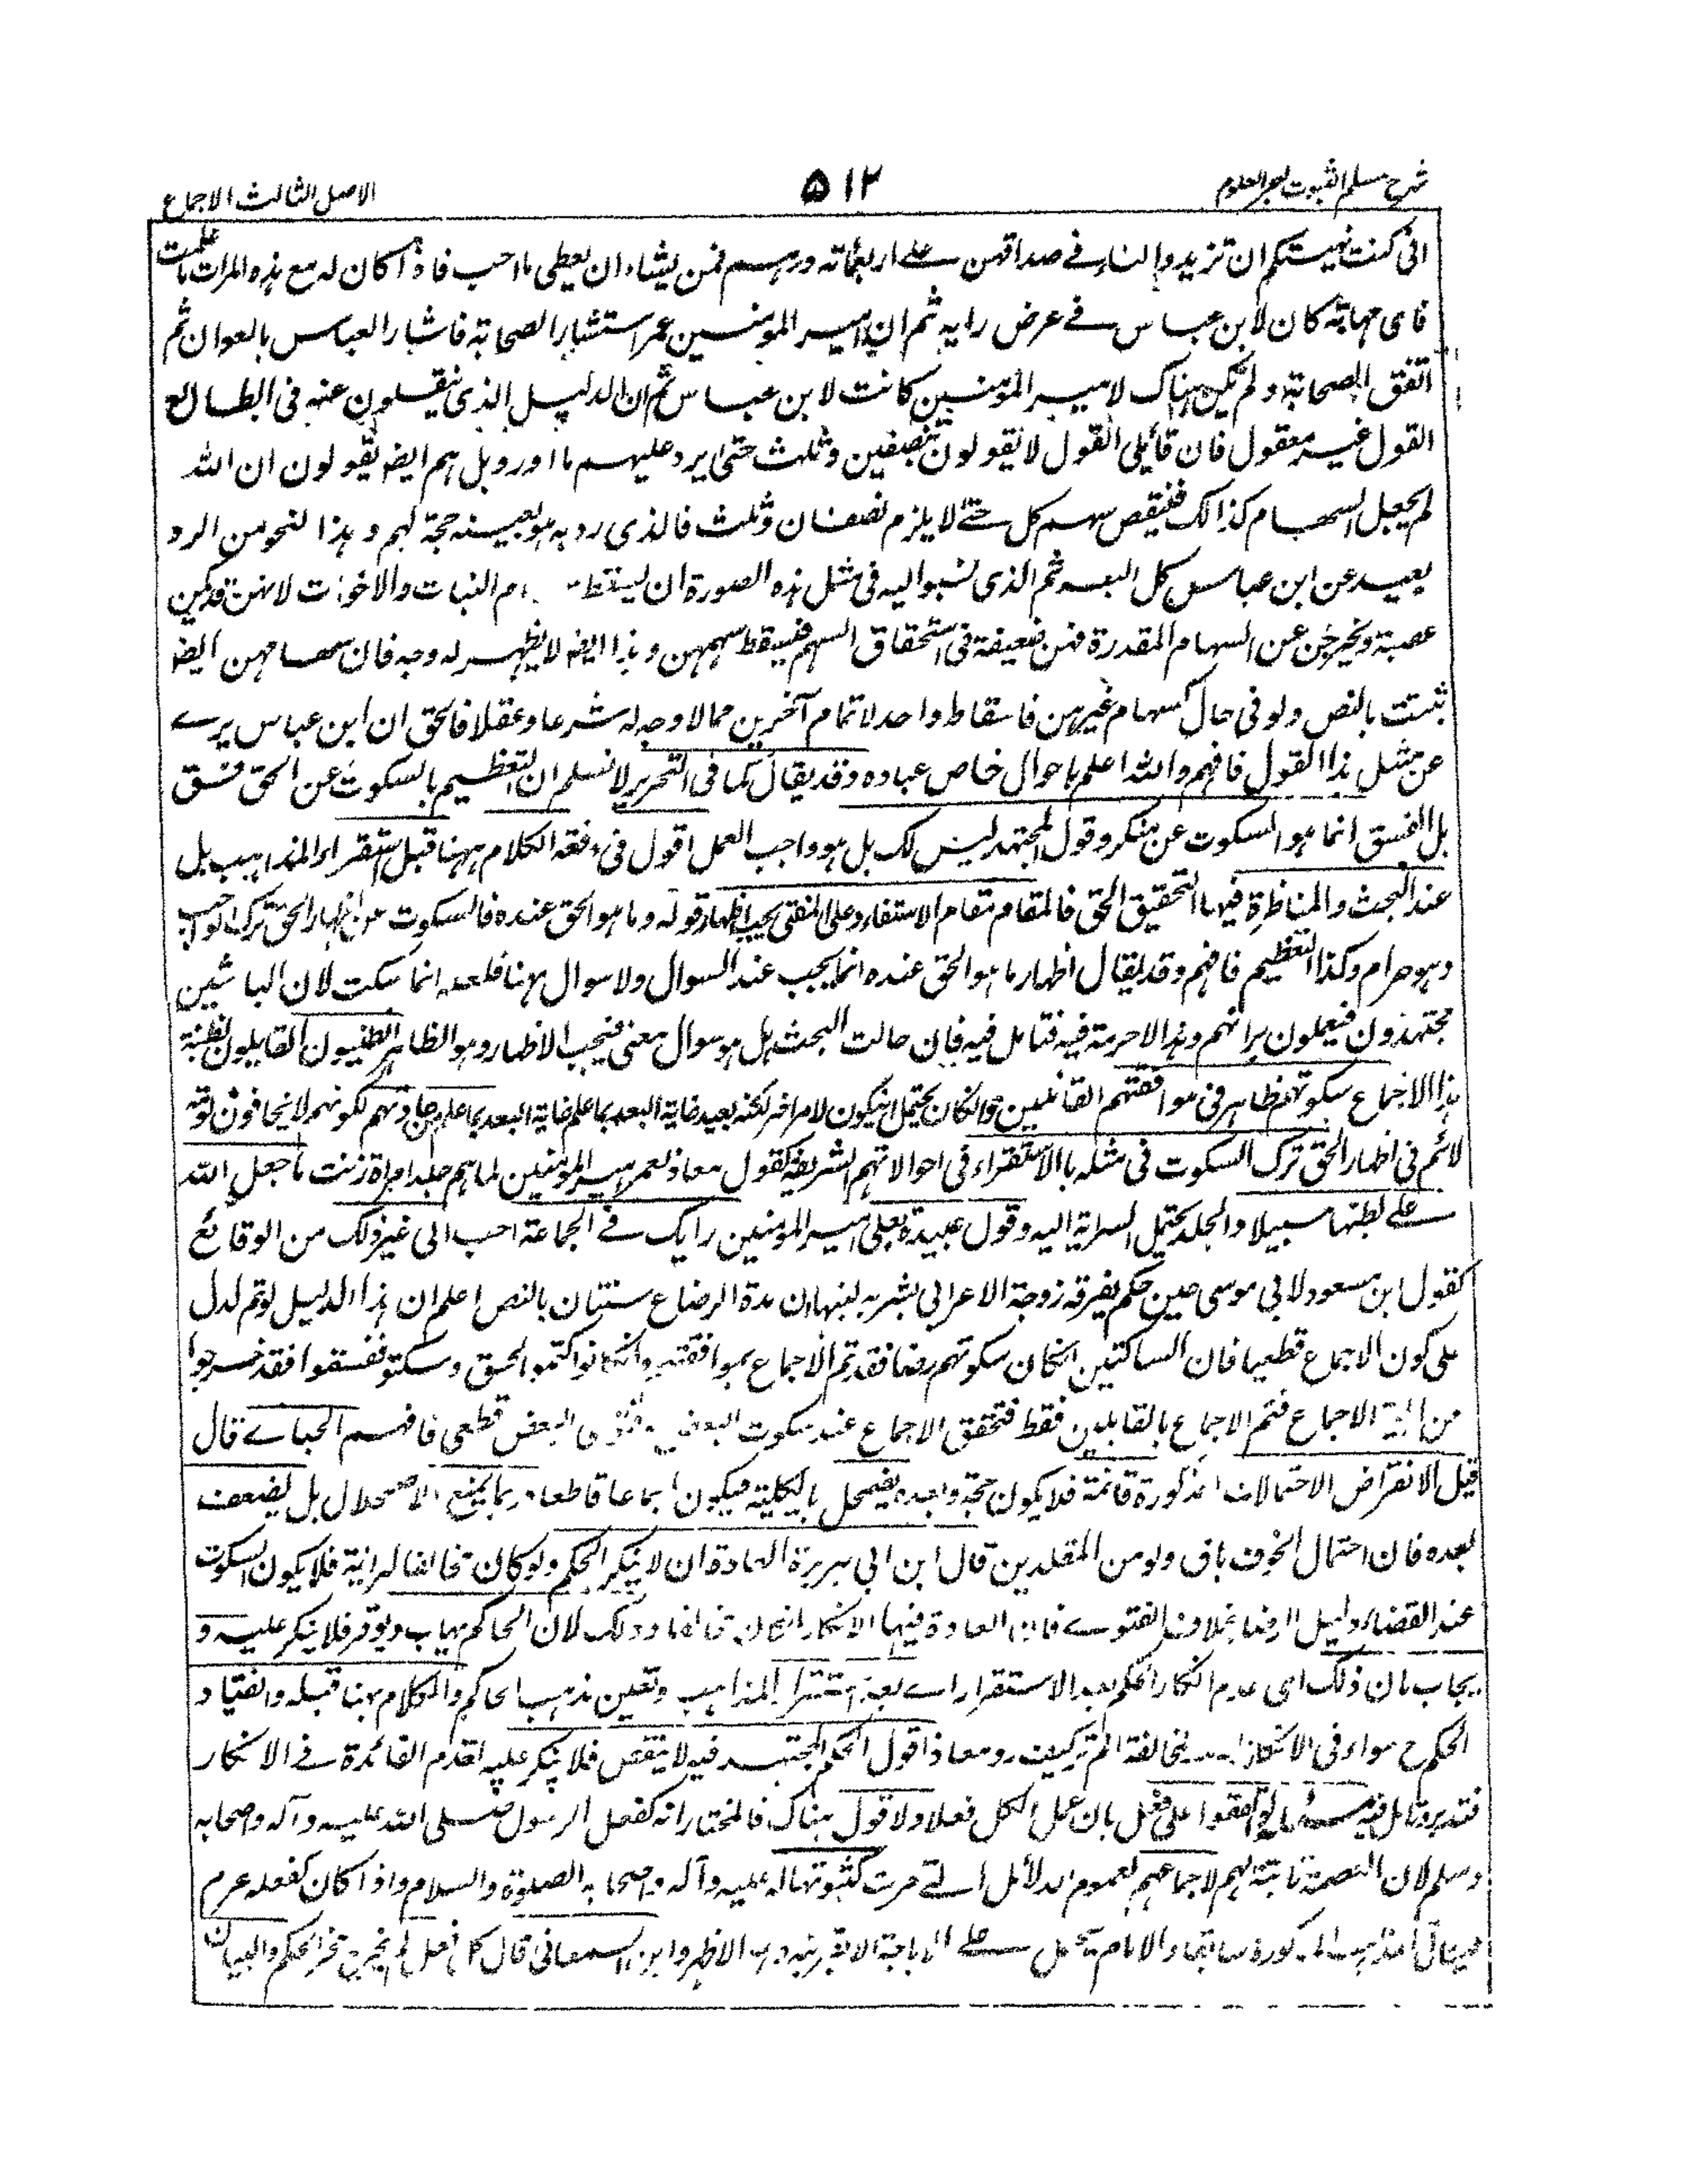 شرح مسلم الثبوت لبحر العلوم
٥١٢
الاصل الثالث الاجماع
انى كنت نهيتكم ان تزيدوا النساء فے صداقهن علے اربعمائة درهم فمن يشاء ان يعطى ما احب فاذا كان له مع هذه المرات ما علمت
فاى مهابة كان لابن عباس فے عرض رايه ثم ان امير المومنين عمر استشار الصحابة فاشار العباس بالعول ان ثم
اتفق الصحابة ولم تكن هناك لامير المؤمنين كانت لابن عباس ثم ان الدليل الذى ينقلون عنه فى ابطال
القول غير معقول فان قائلى القول لا يقولون بنصفين وثلث حتى يرد عليهم ما اورد بل هم ايضا يقولون ان الله
لم يجعل السهام كذالك فينقص سهم كل حتے لا يلزم نصفان وثلث فالذى رد به هو بعينه حجة لهم وهذا النحو من الرد
بعيد عن ابن عباس كل البعد ثم الذى نسبوا اليه فى مثل هذه الصورة ان يسقط البنات والاخوات لانهن قد يكن
عصبة ويخرجن عن السهام المقدرة فهن ضعيفة فى استحقاق السهم فيسقط سهمهن وهذا ايضا لا يظهر له وجه فان سهامهن ايضا
ثبتت بالنص ولو فى حال كسهام غيرهن فاسقاط واحد لاتمام آخرين مما لا وجه له شرعا وعقلا فالحق ان ابن عباس برے
عن مثل هذا القول فافهم والله اعلم باحوال خاص عباده وقد يقال كما فى التحرير لا نسلم ان التعظيم بالسكوت عن الحق فسق
بل الفسق انما هو السكوت عن منكر وقول المجتهد ليس كك بل هو واجب العمل اقول فى دفعه الكلام ههنا قبل استقرار المذاهب بل
عند البحث والمناظرة فيها التحقيق الحق فالمقام مقام الاستفتاء وعلى المفتى يجب اظهار قوله وما هو الحق عنده فالسكوت عن اظهار الحق ترك الواجب
وهو حرام وكذا التعظيم فافهم وقد يقال اظهار ما هو الحق عنده انما يجب عند السوال ولا سوال ههنا فلعله انما سكت لان الباحثين
مجتهدون فيعملون برائهم وهذا لا حرمة فيه فتامل فيه فان حالت البحث بل هو سوال معنى فيجب الاظهار وهو الظاهر الظنيون القايلون بظنية
هذا الاجماع سكوتهم ظاهر فى موافقتهم القائلين وان كان يحتمل ان يكون لامر آخر لكنه بعيد غاية البعد بما علم غاية البعد بما علم من حادتهم لكونهم لا يخافون لومة
لائم فى اظهار الحق ترك السكوت فى مثله بالاستقراء فى احوالاتهم الشريفة كقول معاذ لعمر امير المؤمنين لما هم جلد امراة زنت ما جعل الله
علے بطنها سبيلا والجلد يحتمل السراية اليه وقول عبيدة لعلى امير المومنين رايك فے الجماعة احب الى غير ذلك من الوقائع
كقول ابن مسعود لابى موسى حين حكم بفرقة زوجة الاعرابى بشربه لبنها ان مدة الرضاع سنتان بالنص اعلم ان هذا الدليل لو تم لدل
على كون الاجماع قطعيا فان الساكتين ان كان سكوتهم رضا فقد تم الاجماع بموافقتهم وان كانوا كتموا الحق وسكتوا ففسقوا فقد خرجوا
من الاجماع فتم الاجماع بالقايلين فقط فتحقق الاجماع عند سكوت البعض وفتوى البعض قطعى فافهم الجباے قال
قبل الانقراض الاحتمالات المذكورة قائمة فلا يكون حجة وبعده يضمحل بالكلية فيكون اجماعا قاطعا وربما يمنع الاضمحلال بل يضعف
بعده فان احتمال الخوف باق ولو من المقلدين قال ابن ابى هريرة العادة ان لا ينكر الحكم ولو كان مخالفا لرائه فلا يكون السكوت
عند القضاء دليل الرضا بخلاف الفتوے فان العادة فيها الانكار ان كان مخالفا وذلك لان الحاكم يهاب ويوقر فلا ينكر عليه و
يجاب بان ذلك اى عدم انكار الحكم بعد الاستقرار اے بعد استقرار المذاهب وتعين مذهب الحاكم والكلام ههنا قبله والفتيا و
الحكم ح سواء فى الانكار لمخالفة الم تر كيف رد معاذ اقول الحكم المجتهد فيه لا ينقض فلا ينكر عليه لعدم الفائدة فے الانكار
فتدبر وتامل فيه مسئلة لو اتفقوا على فعل بان عمل الكل فعلا ولا قول هناك فالمختار انه كفعل الرسول صلى الله عليه وآله وصحابه
وسلم لان العصمة ثابتة لهم لاجماعهم لعموم الدلائل التے مرت كثبوتها له عليه وآله واصحابه الصلوة والسلام واذا كان كفعله عرم
المذاهب المذكورة سابقا والامام يحمل علے الاباحة الا بقرينة وهو الاظهر وابن السمعانى قال كل فعل لم يخرج مخرج الحكم والبيان